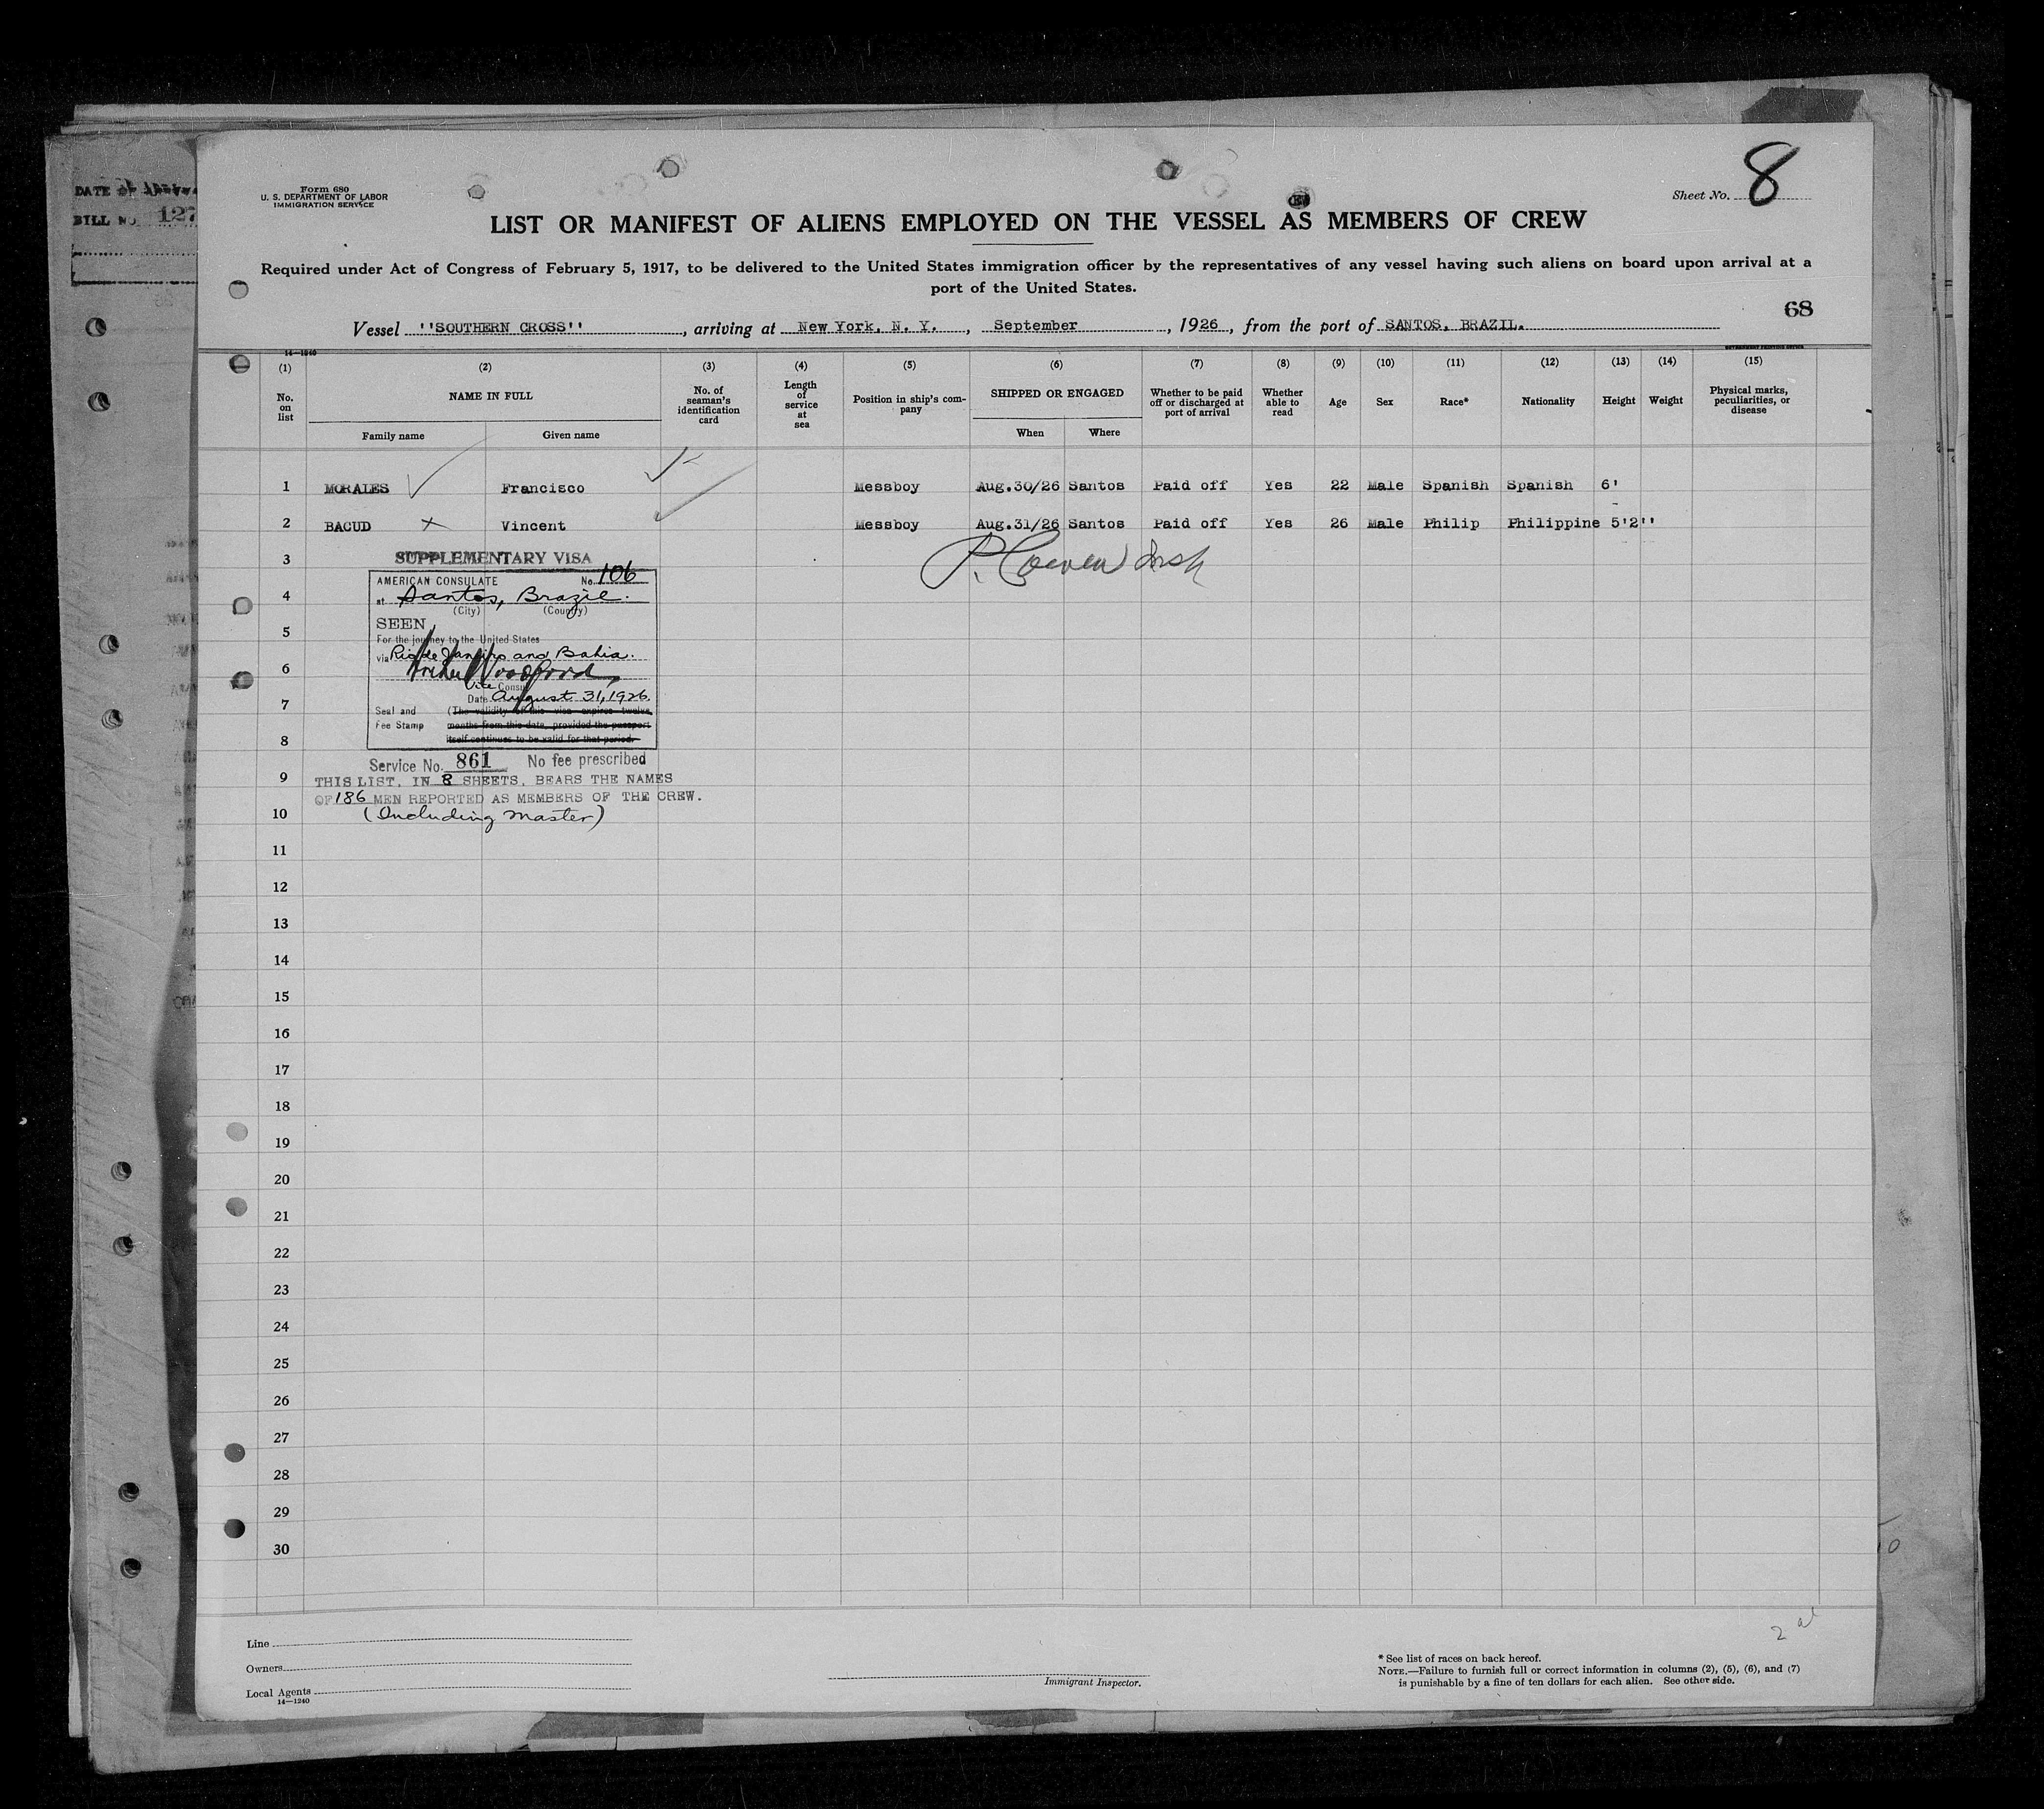 DATE of
BILL No. 127
Form 680
U. S. DEPARTMENT OF LABOR
IMMIGRATION SERVICE
Sheet No. 8
LIST OR MANIFEST OF ALIENS EMPLOYED ON THE VESSEL AS MEMBERS OF CREW
Required under Act of Congress of February 5, 1917, to be delivered to the United States immigration officer by the representatives of any vessel having such aliens on board upon arrival at a
port of the United States.
68
Vessel ''SOUTHERN CROSS'', arriving at New York, N. Y., September, 1926, from the port of SANTOS, BRAZIL.
14—1240
GOVERNMENT PRINTING OFFICE
(1) (2) (3) (4) (5) (6) (7) (8) (9) (10) (11) (12) (13) (14) (15)
No. on list
NAME IN FULL
Family name
Given name
No. of seaman's identification card
Length of service at sea
Position in ship's company
SHIPPED OR ENGAGED
When
Where
Whether to be paid off or discharged at port of arrival
Whether able to read
Age
Sex
Race*
Nationality
Height
Weight
Physical marks, peculiarities, or disease
1 MORALES Francisco Messboy Aug.30/26 Santos Paid off Yes 22 Male Spanish Spanish 6'
2 BACUD Vincent Messboy Aug.31/26 Santos Paid off Yes 26 Male Philip Philippine 5'2''
3
SUPPLEMENTARY VISA
AMERICAN CONSULATE No. 106
4
at Santos, Brazil.
(City) (County)
5
SEEN
For the journey to the United States
via Rio de Janeiro and Bahia.
6
Woodford
Vice Consul
Date August 31, 1926.
7
Seal and (The validity of this visa expires twelve
Fee Stamp months from this date, provided the passport
8
itself continues to be valid for that period.
Service No. 861 No fee prescribed
9
THIS LIST, IN 8 SHEETS, BEARS THE NAMES
OF 186 MEN REPORTED AS MEMBERS OF THE CREW.
10
(Including Master)
11
12
13
14
15
16
17
18
19
20
21
22
23
24
25
26
27
28
29
30
Line
Owners
Local Agents
14—1240
Immigrant Inspector.
* See list of races on back hereof.
NOTE.—Failure to furnish full or correct information in columns (2), (5), (6), and (7)
is punishable by a fine of ten dollars for each alien. See other side.